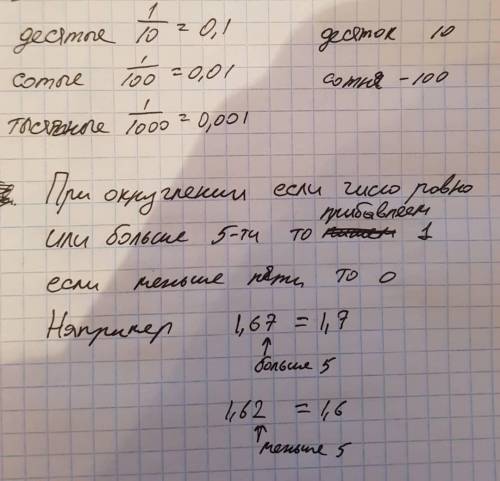 десятые 1/10 = 0,1 десяток 10
сотые 1/100 = 0,01 сотня - 100
тысячные 1/1000 = 0,001
При округлении если число ровно
или больше 5-ти то прибавляем 1
если меньше пяти то 0
Например 1,67 = 1,7
больше 5
1,62 = 1,6
меньше 5